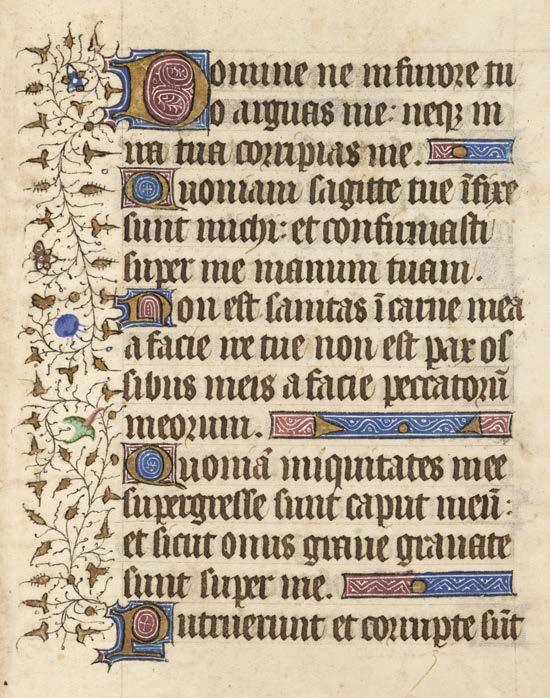 Domine ne in furore tu
o arguas me: neqꝫ in
ira tua corripias me.
Quoniam sagitte tue īfixe
sunt michi: et confirmasti
super me manum tuam.
Non est sanitas ī carne mea
a facie ire tue non est pax os
sibus meis a facie peccatorū
meorum.
Quoniā iniquitates mee
supergresse sunt caput meū:
et sicut onus graue grauate
sunt super me.
Putruerunt et corrupte sūt